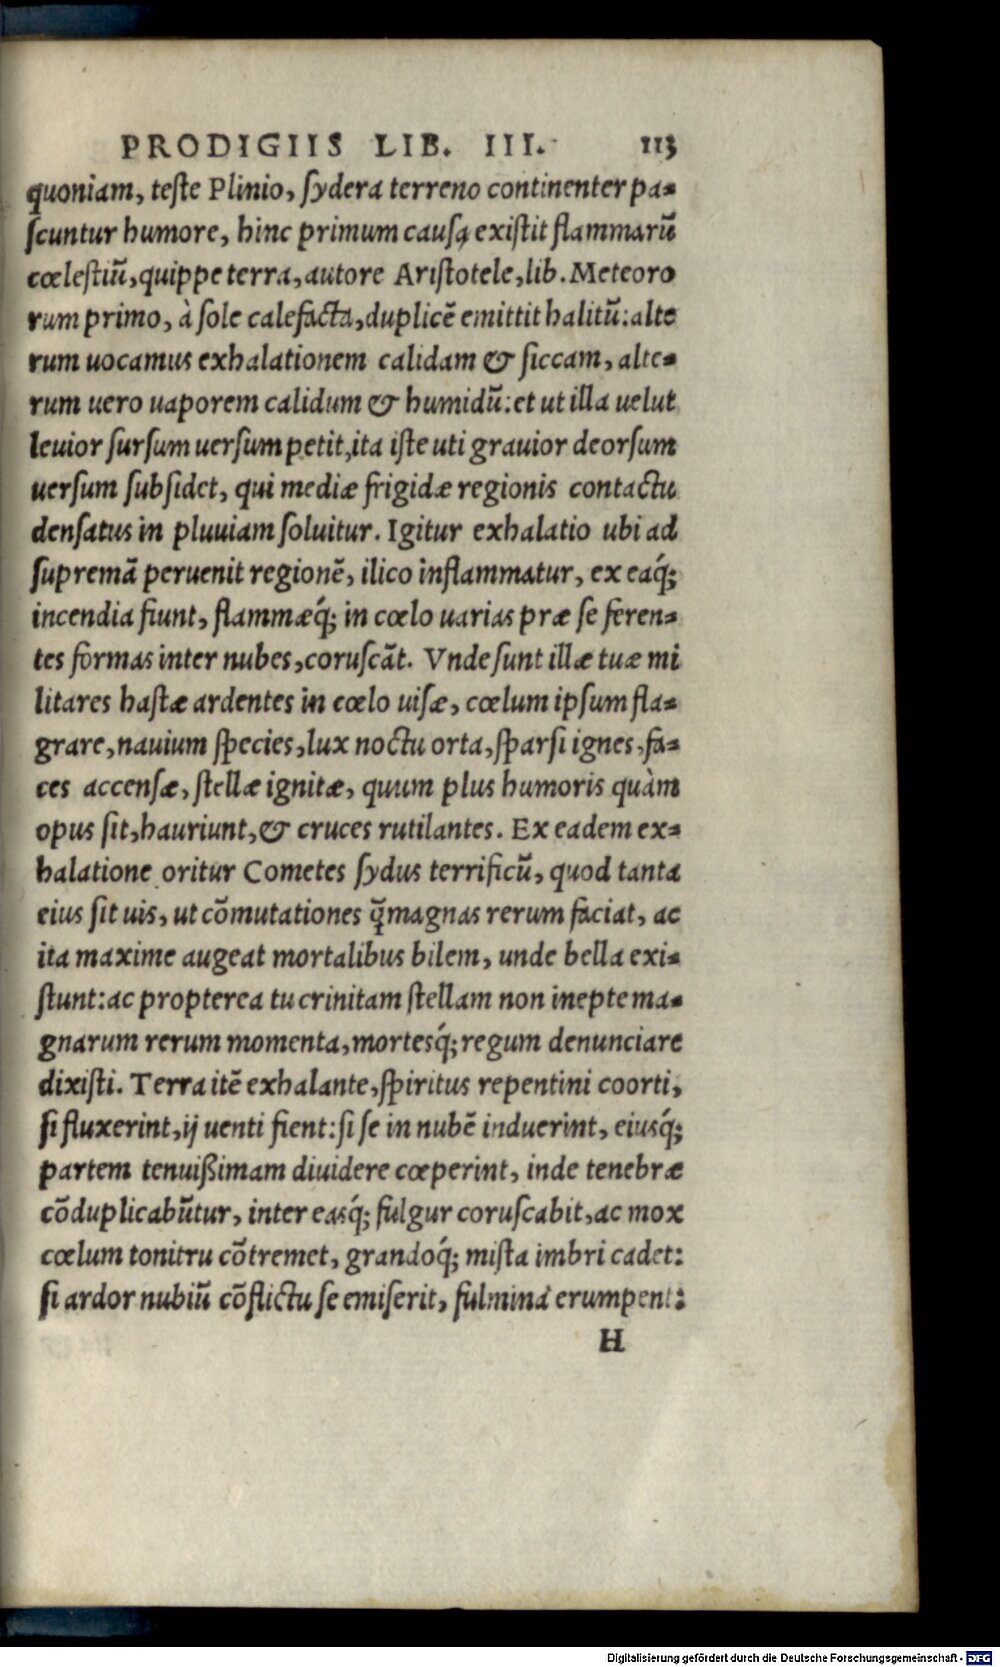 PRODIGIIS LIB. III. 113
quoniam, teſte Plinio, ſydera terreno continenter pa-
ſcuntur humore, hinc primum cauſa exiſtit flammarũ
cœleſtiũ, quippe terra, autore Ariſtotele, lib. Meteoro
rum primo, à ſole calefacta, duplicẽ emittit halitũ: alte
rum uocamus exhalationem calidam & ſiccam, alte-
rum uero uaporem calidum & humidũ: et ut illa uelut
leuior ſurſum uerſum petit, ita iſte uti grauior deorſum
uerſum ſubſidet, qui mediæ frigidæ regionis contactu
denſatus in pluuiam ſoluitur. Igitur exhalatio ubi ad
ſupremã peruenit regionẽ, ilico inflammatur, ex eaq́;
incendia fiunt, flammæq́; in cœlo uarias præ ſe feren-
tes formas inter nubes, coruſcãt. Vnde ſunt illæ tuæ mi
litares haſtæ ardentes in cœlo uiſæ, cœlum ipſum fla-
grare, nauium ſpecies, lux noctu orta, ſparſi ignes, fa-
ces accenſæ, ſtellæ ignitæ, quum plus humoris quàm
opus ſit, hauriunt, & cruces rutilantes. Ex eadem ex-
halatione oritur Cometes ſydus terrificũ, quod tanta
eius ſit uis, ut cõmutationes q̃ magnas rerum faciat, ac
ita maxime augeat mortalibus bilem, unde bella exi-
ſtunt: ac propterea tu crinitam ſtellam non inepte ma-
gnarum rerum momenta, mortesq́; regum denunciare
dixiſti. Terra itẽ exhalante, ſpiritus repentini coorti,
ſi fluxerint, ij uenti fient: ſi ſe in nubẽ induerint, eiusq́;
partem tenuißimam diuidere cœperint, inde tenebræ
cõduplicabũtur, inter easq́; fulgur coruſcabit, ac mox
cœlum tonitru cõtremet, grandoq́; miſta imbri cadet:
ſi ardor nubiũ cõflictu ſe emiſerit, fulmina erumpent:
H
Digitalisierung gefördert durch die Deutsche Forschungsgemeinschaft - DFG